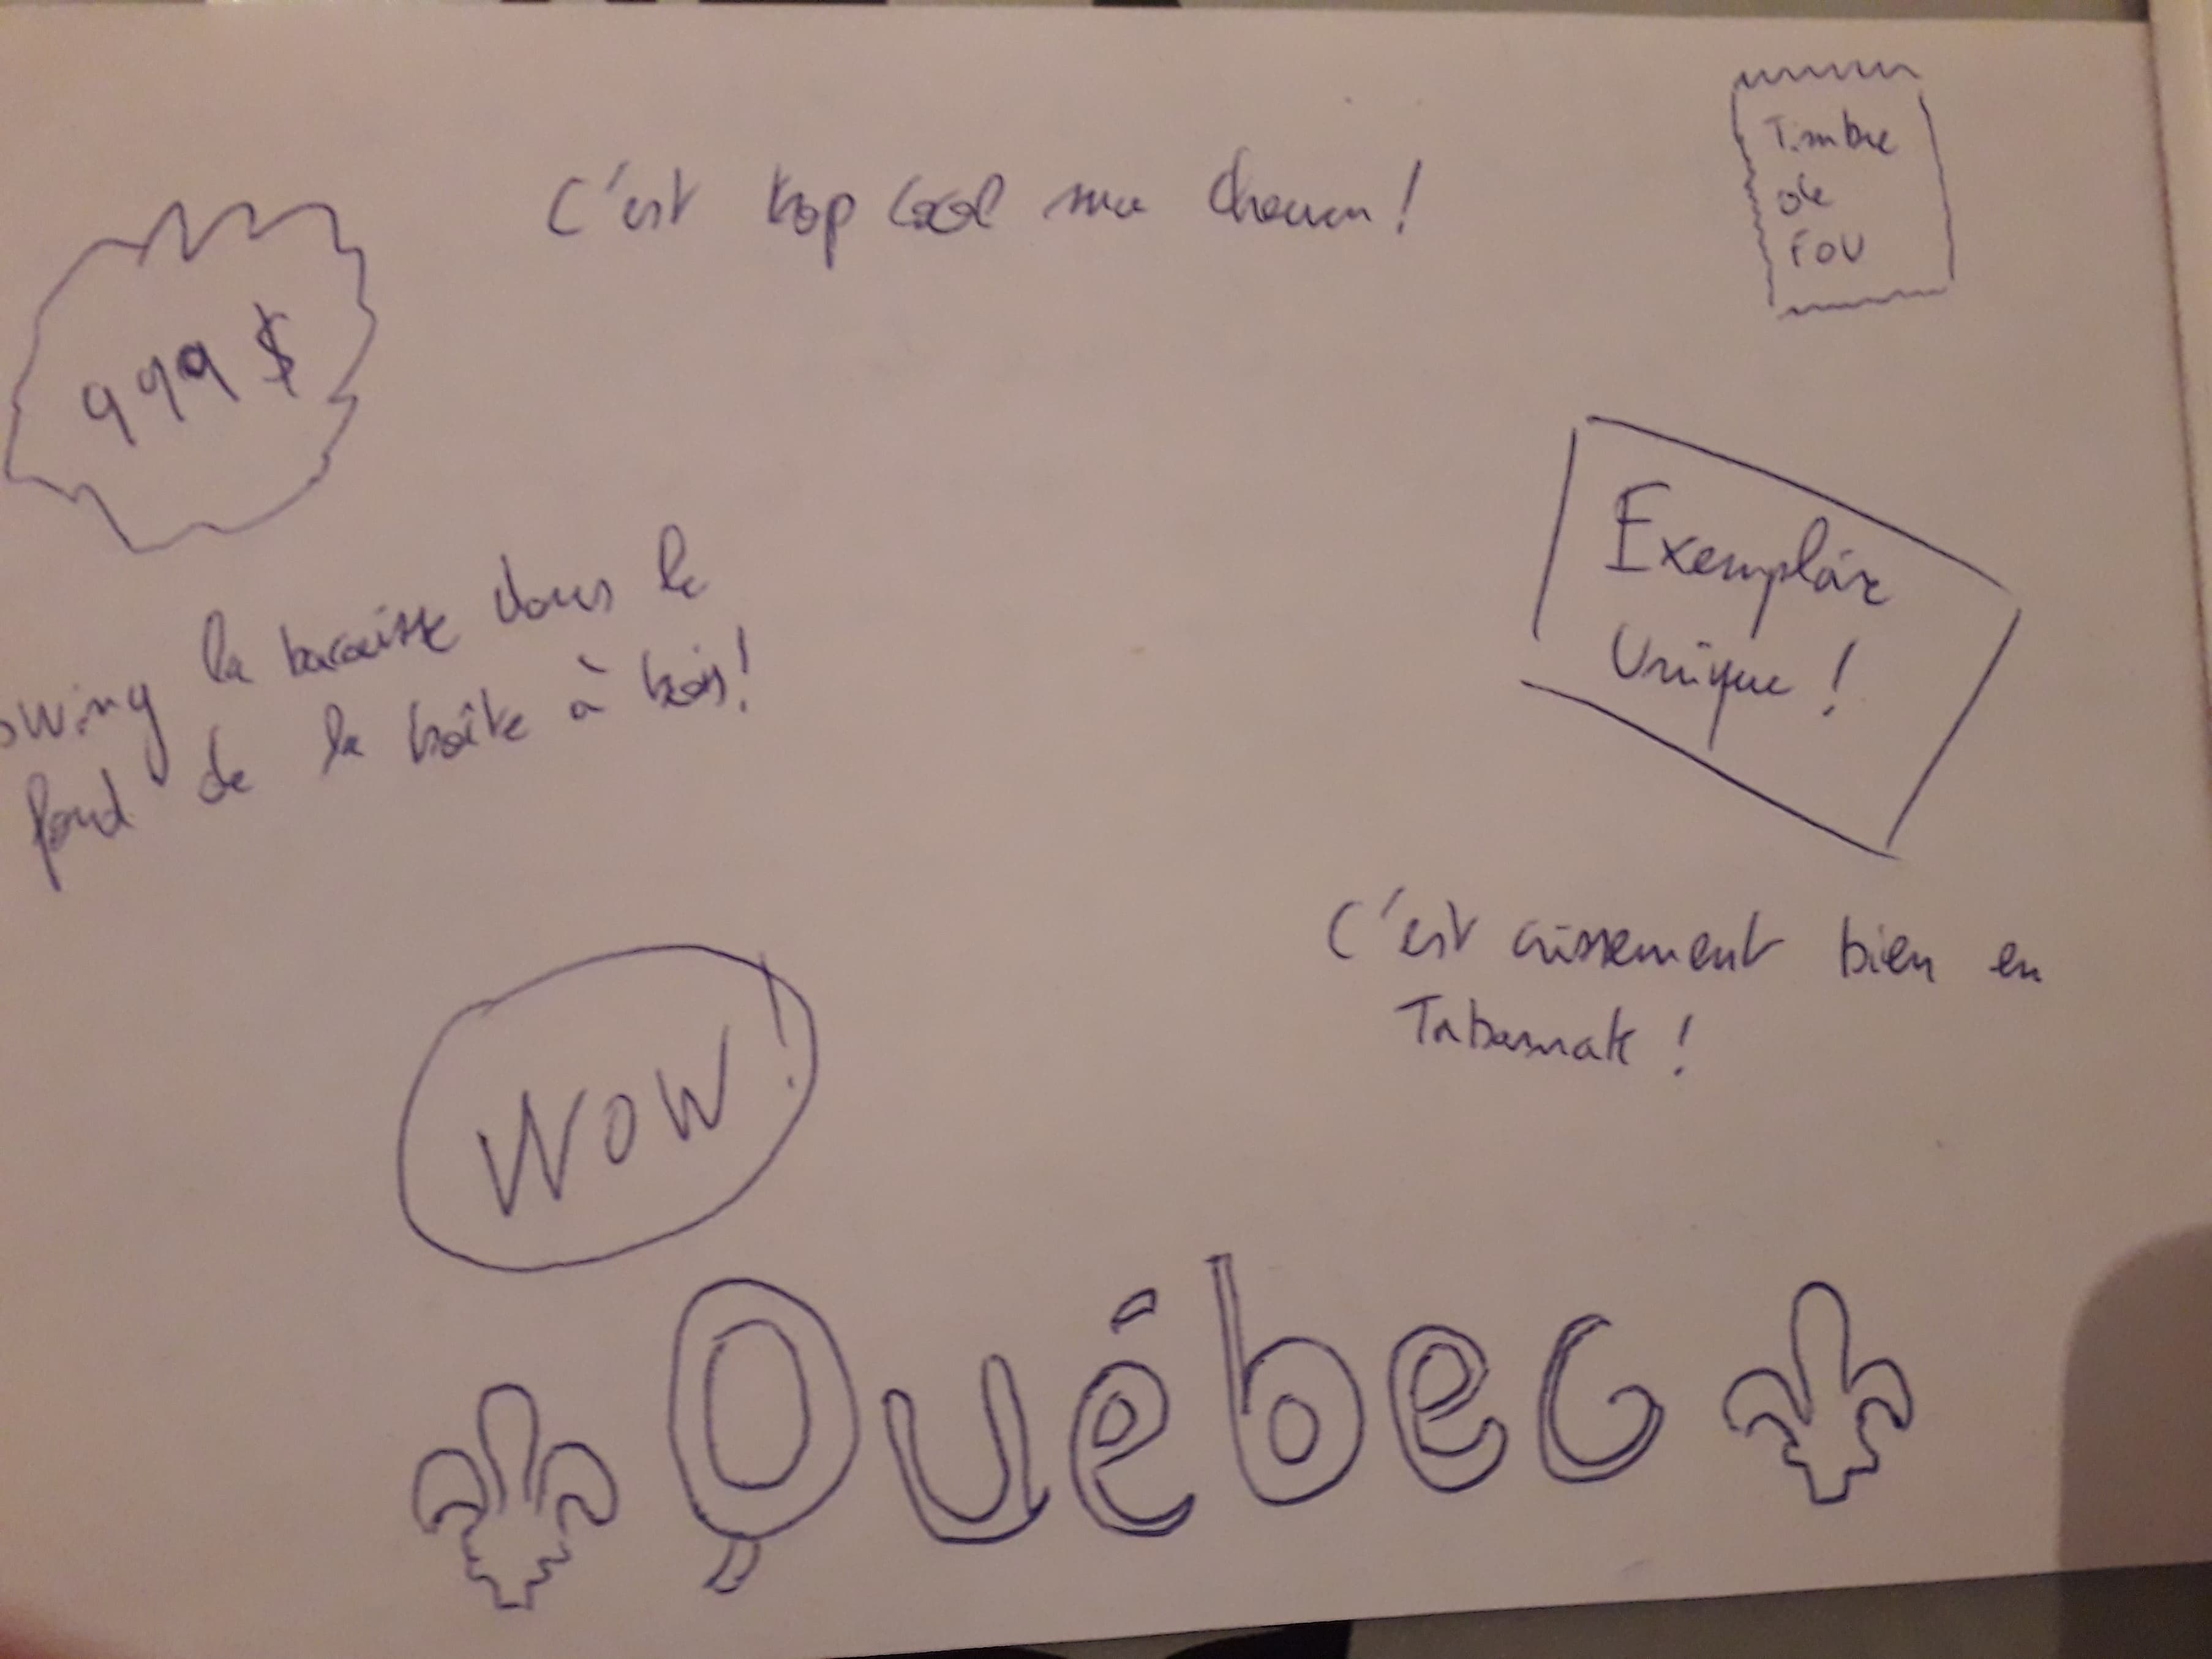 Timbre
de
fou
C'est trop cool ma Choum!
999$
Exemplaire
Unique!
swing la bacaisse dans le
fond de la boîte à bois!
C'est crissement bien en
Tabarnak!
WOW!
Québec